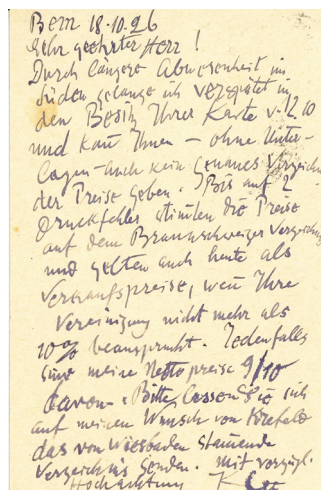 Bern 18.10.26
Sehr geehrter Herr!
Durch längere Abwesenheit im
Süden gelange ich verspätet in
den Besitz Ihrer Karte v. 12.10
und kann Ihnen – ohne Unter-
lagen – auch kein genaues Verzeichn.
der Preise geben. Bis auf 2
Druckfehler stimten die Preise
auf dem Braunschweiger Verzeichnis
und gelten auch heute als
Verkaufspreise, wenn Ihre
Vereinigung nicht mehr als
10% beansprucht. Jedenfalls
sind meine Nettopreise 9/10
davon. Bitte lassen Sie sich
auf meinen Wunsch von Krefeld
das von Wiesbaden stammende
Verzeichnis senden. Mit vorzügl.
Hochachtung